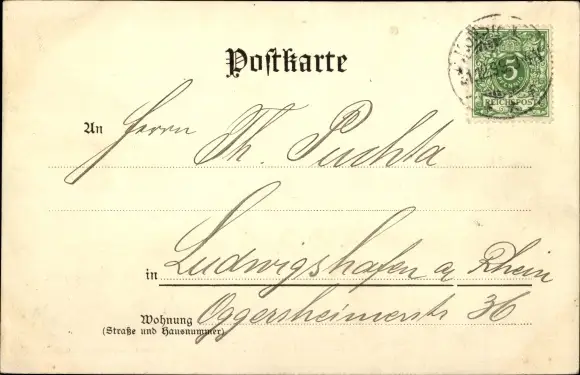 Postkarte
5
REICHSPOST
An Herrn Th. Puchta
in Ludwigshafen a/ Rhein
Wohnung Oggersheimerstr 36
(Straße und Hausnummer)